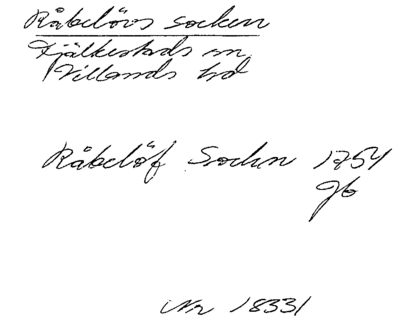 Råbelövs socken
Fjälkestads sn
Villands hd
Råbelöf Sockn 1754
gb
Nr 18331